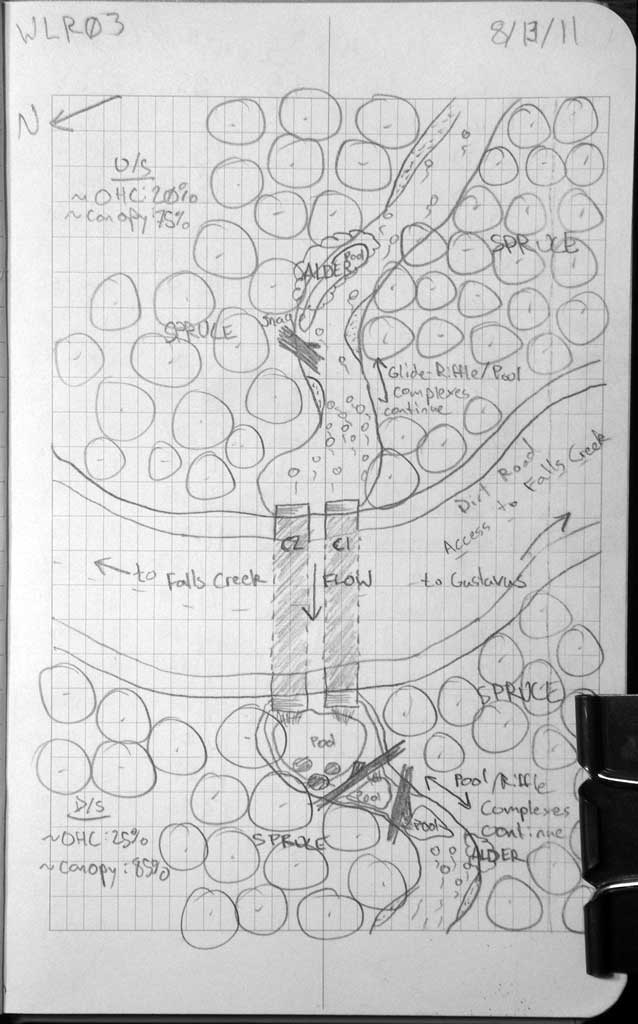 WLR03
8/13/11
N
U/s
~ OHC: 20%
~ Canopy: 75%
SPRUCE
ALDER
Pool
Snag
SPRUCE
Glide-Riffle/Pool
complexes
continue
Dirt Road
Access to Falls Creek
C2
C1
← to Falls Creek
FLOW
to Gustavus
SPRUCE
Pool
Pool
Pool
Pool/Riffle
Complexes
continue
ALDER
D/s
~OHC: 25%
~ Canopy: 85%
SPRUCE